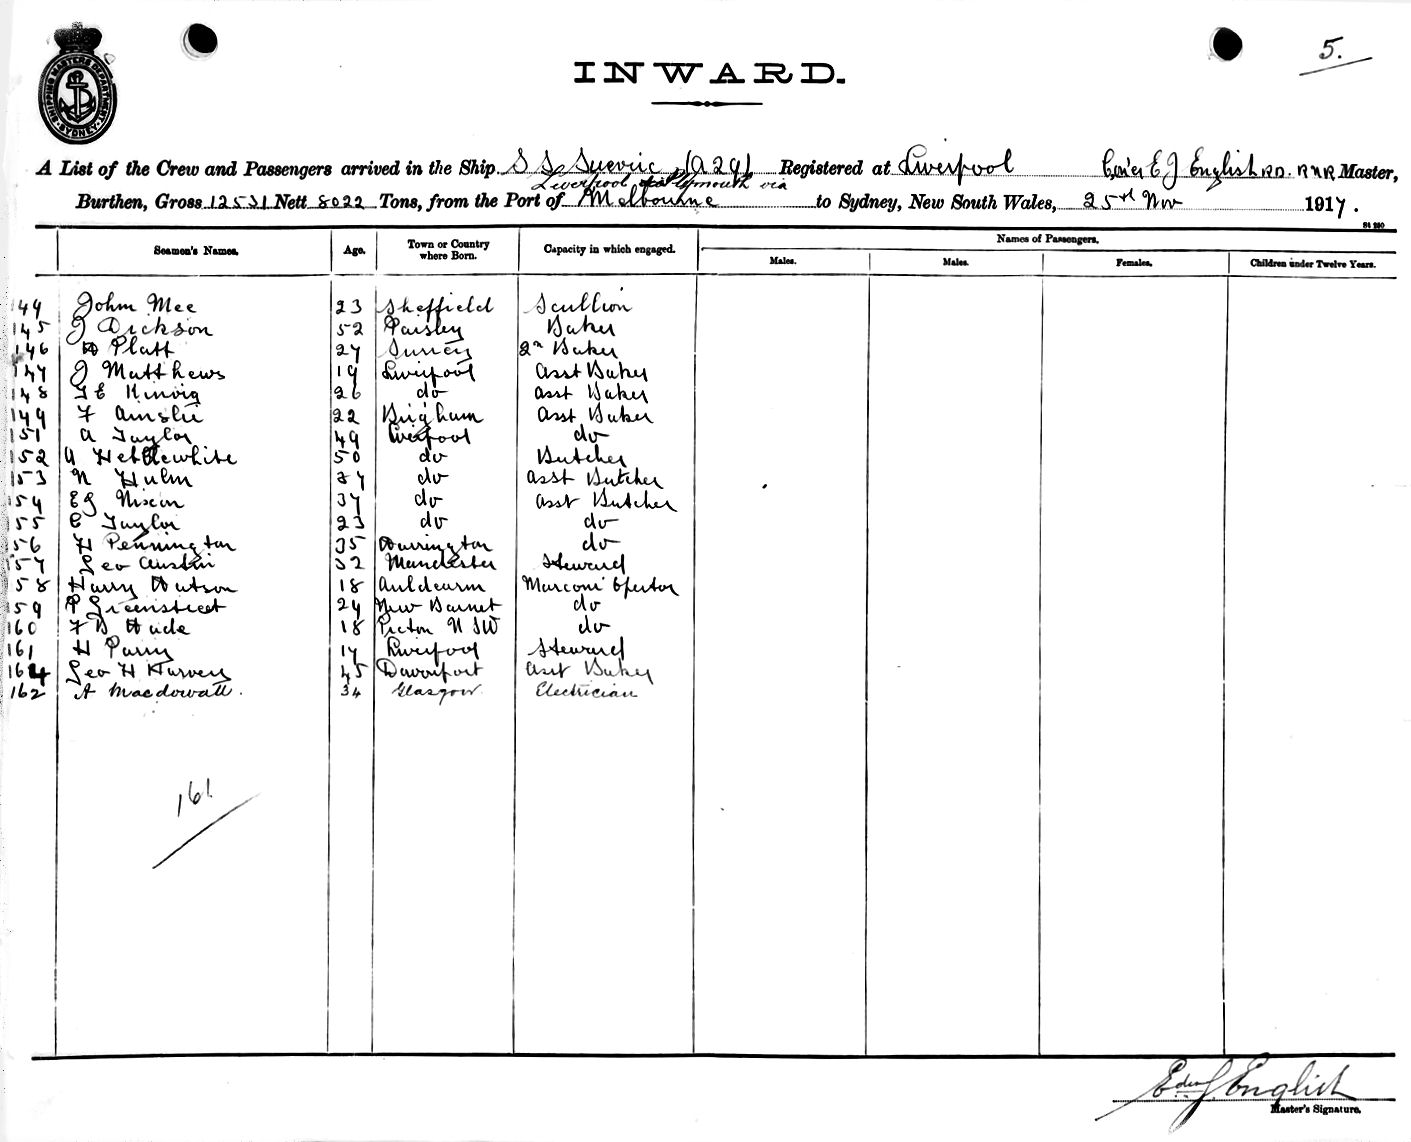 5.
SHIPPING MASTERS DEPARTMENT
SYDNEY
INWARD.
A List of the Crew and Passengers arrived in the Ship S S Suevic (A29) Registered at Liverpool Com'er E J English RD. RNR Master,
Liverpool Plymouth via
Burthen, Gross 12531 Nett 8022 Tons, from the Port of Melbourne to Sydney, New South Wales, 25th Nov 1917.
Names of Passengers.
Seamen's Names. Age. Town or Country where Born. Capacity in which engaged. Males. Males. Females. Children under Twelve Years.
144 John Mee 23 Sheffield Scullion
145 J Dickson 52 Paisley Baker
146 Platt 27 Surrey 2n Baker
147 J Matthews 19 Liverpool Asst Baker
148 26 do Asst Baker
149 F Ainslie 22 Asst Baker
151 A Taylor 49 Liverpool do
152 Hebblewhite 50 do Butcher
153 N Hulm do Asst Butcher
154 EJ Nixon 37 do Asst Butcher
155 C Taylor 23 do do
156 H Pennington 35 Warrington do
157 Geo Austin 32 Manchester Steward
158 Harry Watson 18 Auldearn Marconi Opertor
159 P Greenstreet 24 New Barnet do
160 F B Wade 18 Picton NSW do
161 H Parry 17 Liverpool Steward
164 Geo H Harvey 45 Davonport Asst Baker
162 A Macdowall. 34 Glasgow. Electrician
161
Edw J. English
Master's Signature.